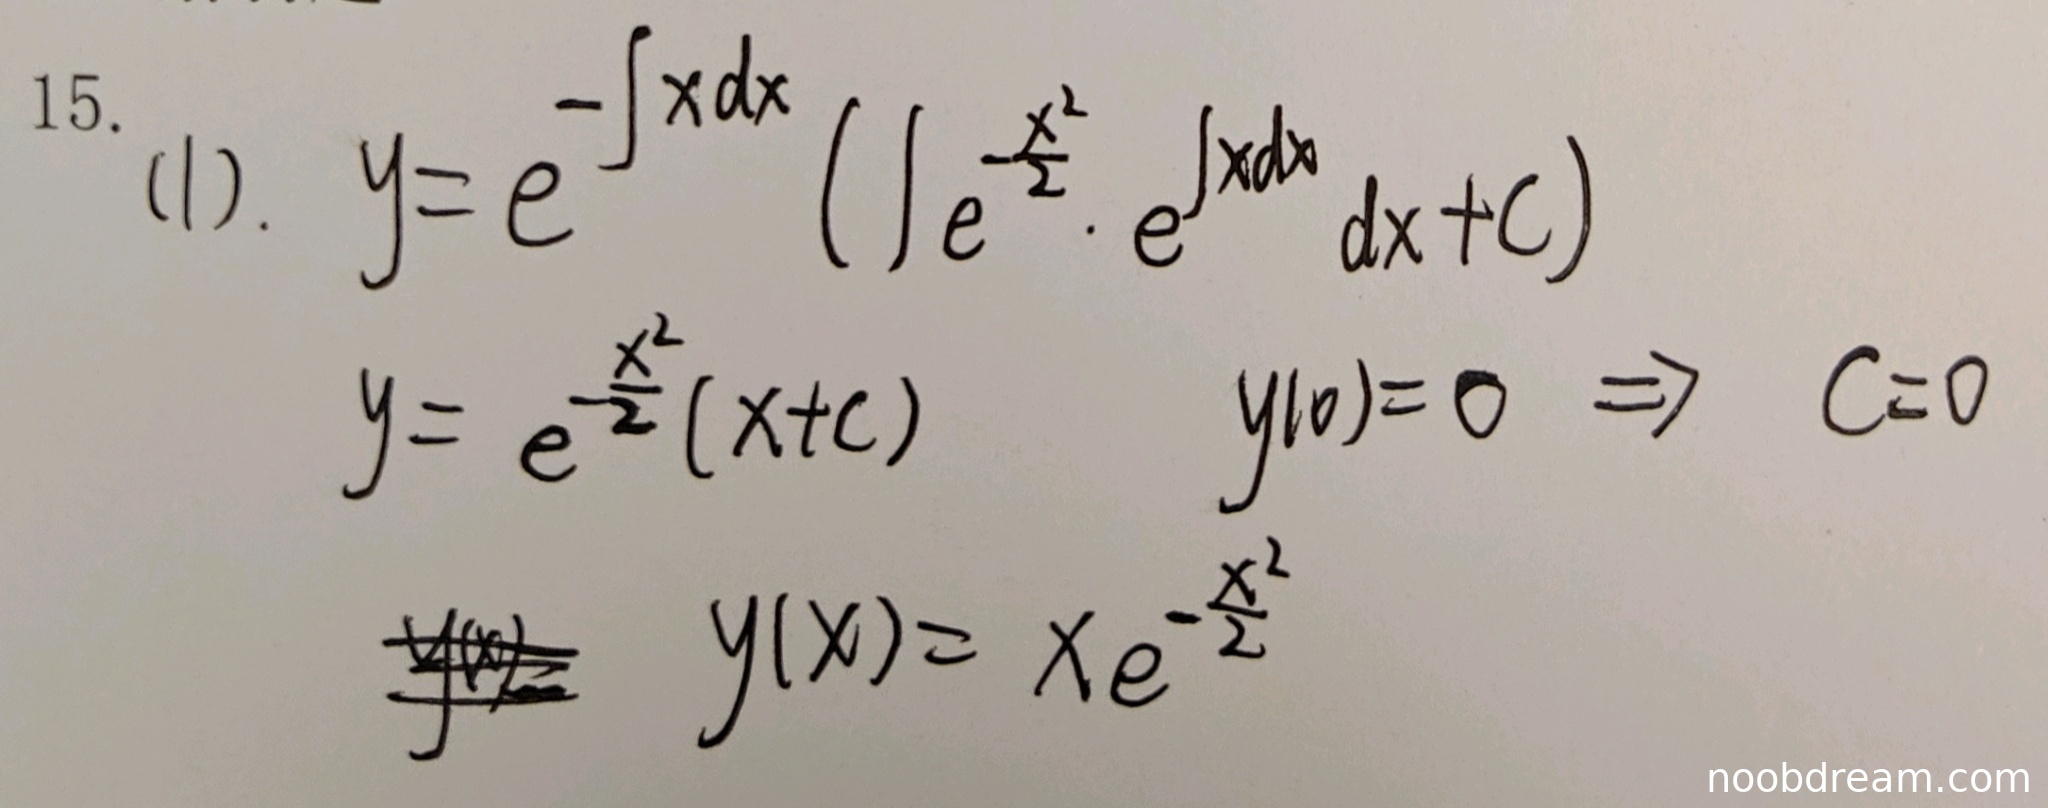 15.
(1). y = e^{-∫xdx} (∫e^{-x²/2} · e^{∫xdx} dx + C)
y = e^{-x²/2} (x+C) y(0) = 0 ⇒ C = 0
y(x) = xe^{-x²/2}
noobdream.com